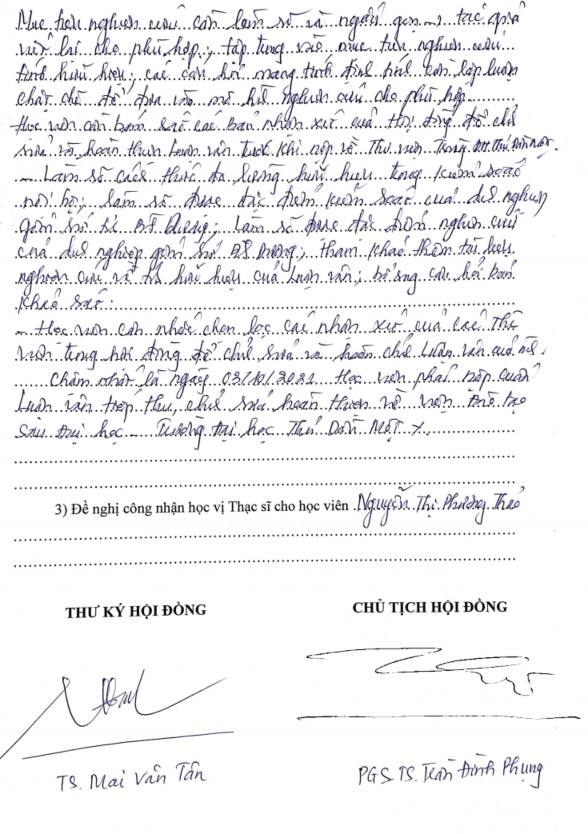 Mục tiêu nghiên cứu cần làm rõ và ngắn gọn → tác giả
viết lại cho phù hợp; tập trung vào mục tiêu nghiên cứu
tính hữu hiệu; các câu hỏi mang tính định tính cần lập luận
chặt chẽ để đưa vào mô hình nghiên cứu cho phù hợp.
Học viên cần bám sát các bản nhận xét của Hội đồng để chỉ
sửa và hoàn thiện Luận văn trước khi nộp về Thư viện Trường ĐH Thủ Dầu Một.
- Làm rõ cách thức đo lường hữu hiệu trong kiểm soát
nội bộ; làm rõ được đặc điểm kiểm soát của doanh nghiệp
gốm sứ tỉnh B. Dương; làm rõ được đặc điểm nghiên cứu
của doanh nghiệp gốm sứ B. Dương; tham khảo thêm tài liệu
nghiên cứu về tính hữu hiệu của Luận văn; bổ sung câu hỏi bản
khảo sát.
- Học viên cần nhóm chọn lọc các nhận xét của các Thành
viên trong hội đồng để chỉnh sửa và hoàn chỉnh Luận văn của mình.
Chậm nhất là ngày 03/10/2021 Học viên phải nộp cuốn
Luận văn tiếp thu, chỉnh sửa hoàn thiện về viện Đào tạo
Sau Đại học - Trường Đại học Thủ Dầu Một
3) Đề nghị công nhận học vị Thạc sĩ cho học viên Nguyễn Thị Phương Thảo
THƯ KÝ HỘI ĐỒNG
CHỦ TỊCH HỘI ĐỒNG
TS. Mai Văn Tân
PGS.TS. Trần Đình Phụng